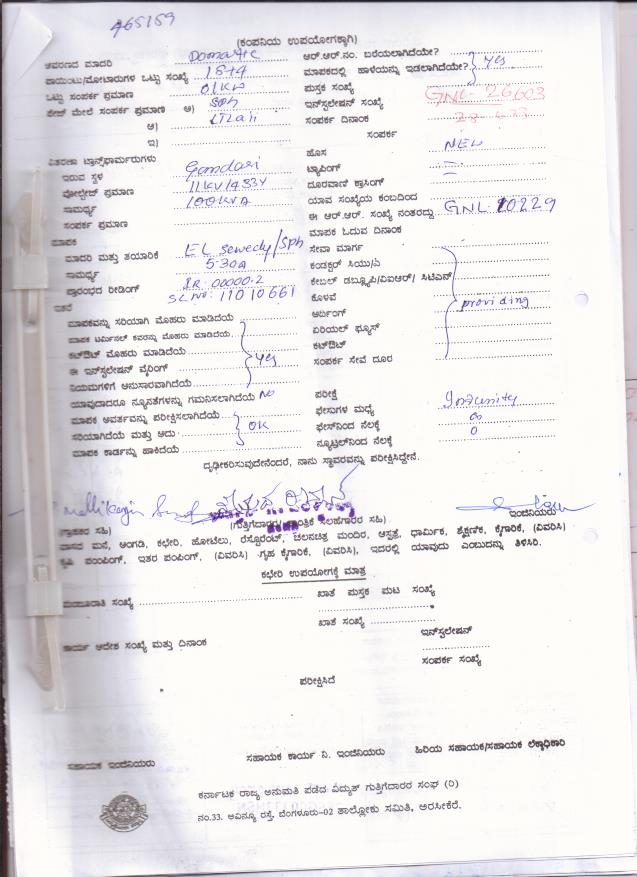 465159
(ಕಂಪನಿಯ ಉಪಯೋಗಕ್ಕಾಗಿ)
ಆವರಣದ ಮಾದರಿ Domastic
ಪಾಯಿಂಟು/ಮೋಟಾರುಗಳ ಒಟ್ಟು ಸಂಖ್ಯೆ 15+4
ಒಟ್ಟು ಸಂಪರ್ಕ ಪ್ರಮಾಣ 01KW
ಫೇಜ್ ಮೇಲೆ ಸಂಪರ್ಕ ಪ್ರಮಾಣ ಅ) SPh
ಆ)
ಇ)
ವಿತರಣಾ ಟ್ರಾನ್ಸ್‌ಫಾರ್ಮರುಗಳು
ಇರುವ ಸ್ಥಳ Gandasi
ವೋಲ್ಟೇಜ್ ಪ್ರಮಾಣ 11KV/433V
ಸಾಮರ್ಥ್ಯ 100KVA
ಸಂಪರ್ಕ ಪ್ರಮಾಣ
ಮಾಪಕ
ಮಾದರಿ ಮತ್ತು ತಯಾರಿಕೆ EL Sewedy/SPh
ಸಾಮರ್ಥ್ಯ 5-30A
ಪ್ರಾರಂಭದ ರೀಡಿಂಗ್ IR: 00000.2
SL no: 11010661
ಇತರೆ
ಮಾಪಕವನ್ನು ಸರಿಯಾಗಿ ಮೊಹರು ಮಾಡಿದೆಯೆ
ಮಾಪಕ ಟರ್ಮಿನಲ್ ಕವರನ್ನು ಮೊಹರು ಮಾಡಿದೆಯೆ
ಕಟ್‌ಔಟ್ ಮೊಹರು ಮಾಡಿದೆಯೆ
ಈ ಇನ್‌ಸ್ಟಲೇಷನ್ ವೈರಿಂಗ್ yes
ನಿಯಮಗಳಿಗೆ ಅನುಸಾರವಾಗಿದೆಯೆ
ಯಾವುದಾದರೂ ನ್ಯೂನತೆಗಳನ್ನು ಗಮನಿಸಲಾಗಿದೆಯೆ No
ಮಾಪಕ ಆವರ್ತವನ್ನು ಪರೀಕ್ಷಿಸಲಾಗಿದೆಯೆ
ಸರಿಯಾಗಿದೆಯೆ ಮತ್ತು ಅದು OK
ಮಾಪಕ ಕಾರ್ಡನ್ನು ಹಾಕಿದೆಯೆ
ಆರ್.ಆರ್.ನಂ. ಬರೆಯಲಾಗಿದೆಯೇ?
ಮಾಪಕದಲ್ಲಿ ಹಾಳೆಯನ್ನು ಇಡಲಾಗಿದೆಯೇ? yes
ಪುಸ್ತಕ ಸಂಖ್ಯೆ
ಇನ್‌ಸ್ಟಲೇಷನ್ ಸಂಖ್ಯೆ GNL-26603
ಸಂಪರ್ಕ ದಿನಾಂಕ
ಸಂಪರ್ಕ
ಹೊಸ NEW
ಟ್ಯಾಪಿಂಗ್
ದೂರವಾಣಿ ಕ್ರಾಸಿಂಗ್
ಯಾವ ಸಂಖ್ಯೆಯ ಕಂಬದಿಂದ
ಈ ಆರ್.ಆರ್. ಸಂಖ್ಯೆ ನಂತರದ್ದು GNL 20229
ಮಾಪಕ ಓದುವ ದಿನಾಂಕ
ಸೇವಾ ಮಾರ್ಗ
ಕಂಡಕ್ಟರ್ ಸಿಯು/ಎ
ಕೇಬಲ್ ಡಬ್ಲ್ಯೂಪಿ/ವಿಐಆರ್/ ಸಿಟಿಎಸ್
ಕೊಳವೆ providing
ಅರ್ಥಿಂಗ್
ಏರಿಯಲ್ ಫ್ಯೂಸ್
ಕಟ್‌ಔಟ್
ಸಂಪರ್ಕ ಸೇವೆ ದೂರ
ಪರೀಕ್ಷೆ
ಫೇಸುಗಳ ಮಧ್ಯೆ Infinity
ಫೇಸ್‌ನಿಂದ ನೆಲಕ್ಕೆ ∞
ನ್ಯೂಟ್ರಲ್‌ನಿಂದ ನೆಲಕ್ಕೆ 0
ದೃಢೀಕರಿಸುವುದೇನೆಂದರೆ, ನಾನು ಸ್ಥಾವರವನ್ನು ಪರೀಕ್ಷಿಸಿದ್ದೇನೆ.
(ಗ್ರಾಹಕರ ಸಹಿ) (ಗುತ್ತಿಗೆದಾರರ/ತಾಂತ್ರಿಕ ಸಲಹೆಗಾರರ ಸಹಿ) ಇಂಜಿನಿಯರು
ವಾಸದ ಮನೆ, ಅಂಗಡಿ, ಕಛೇರಿ, ಹೋಟೆಲು, ರೆಸ್ಟೋರೆಂಟ್, ಚಲನಚಿತ್ರ ಮಂದಿರ, ಆಸ್ಪತ್ರೆ, ಧಾರ್ಮಿಕ, ಶೈಕ್ಷಣಿಕ, ಕೈಗಾರಿಕೆ, (ವಿವರಿಸಿ)
ಕೃಷಿ ಪಂಪಿಂಗ್, ಇತರ ಪಂಪಿಂಗ್, (ವಿವರಿಸಿ) ಗೃಹ ಕೈಗಾರಿಕೆ, (ವಿವರಿಸಿ), ಇದರಲ್ಲಿ ಯಾವುದು ಎಂಬುದನ್ನು ತಿಳಿಸಿರಿ.
ಕಛೇರಿ ಉಪಯೋಗಕ್ಕೆ ಮಾತ್ರ
ಮಂಜೂರಾತಿ ಸಂಖ್ಯೆ ಖಾತೆ ಪುಸ್ತಕ ಪುಟ ಸಂಖ್ಯೆ
ಖಾತೆ ಸಂಖ್ಯೆ
ಇನ್‌ಸ್ಟಲೇಷನ್
ಕಾರ್ಯ ಆದೇಶ ಸಂಖ್ಯೆ ಮತ್ತು ದಿನಾಂಕ
ಸಂಪರ್ಕ ಸಂಖ್ಯೆ
ಪರೀಕ್ಷಿಸಿದೆ
ಸಹಾಯಕ ಇಂಜಿನಿಯರು ಸಹಾಯಕ ಕಾರ್ಯ ನಿ. ಇಂಜಿನಿಯರು ಹಿರಿಯ ಸಹಾಯಕ/ಸಹಾಯಕ ಲೆಕ್ಕಾಧಿಕಾರಿ
ಕರ್ನಾಟಕ ರಾಜ್ಯ ಅನುಮತಿ ಪಡೆದ ವಿದ್ಯುತ್ ಗುತ್ತಿಗೆದಾರರ ಸಂಘ (ರಿ)
ನಂ.33. ಅವಿನ್ಯೂ ರಸ್ತೆ, ಬೆಂಗಳೂರು-02 ತಾಲ್ಲೋಕು ಸಮಿತಿ, ಅರಸೀಕೆರೆ.